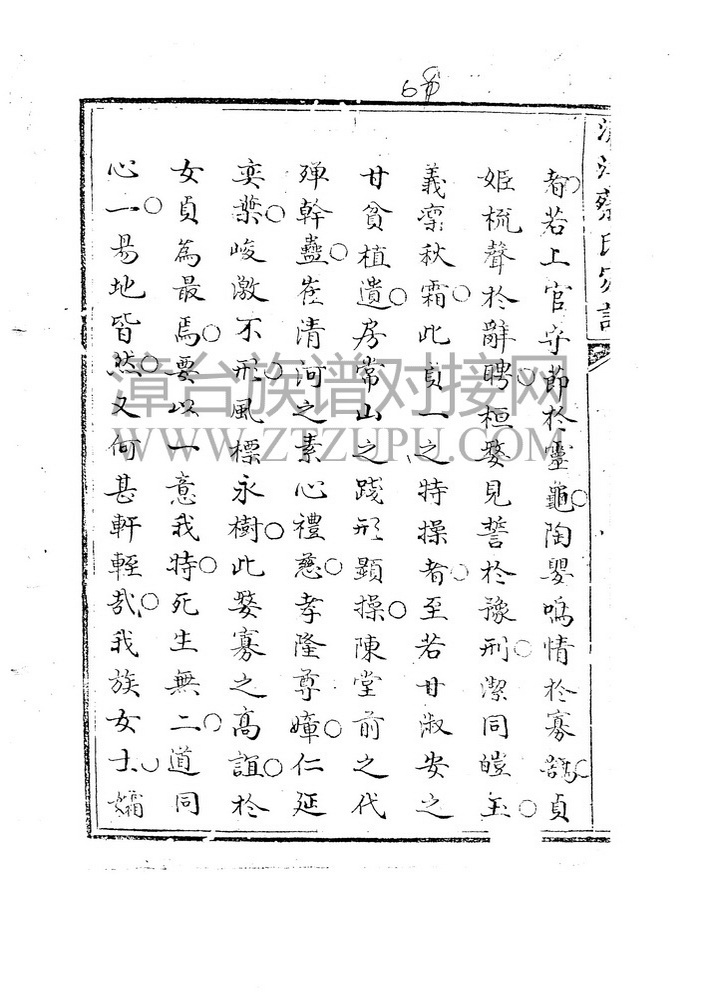 68
者若上官守節於靈龜陶嬰鳴情於寡鵠貞
姬梳聲於辭聘桓嫠見誓於豫刑潔同皚玉
義凜秋霜此貞一之特操者至若甘淑安之
甘貧植遺房常山之踐形顯操陳堂前之代
殫幹蠱崔清河之素心禮慈孝隆尊嫜仁延
奕葉峻激不形風標永樹此嫠寡之高誼於
女貞為最焉要以一意我特死生無二道同
心一易地皆然又何甚軒輊哉我族女士孀
蔡氏家
漳台族谱对接网
WWW.ZTZUPU.COM